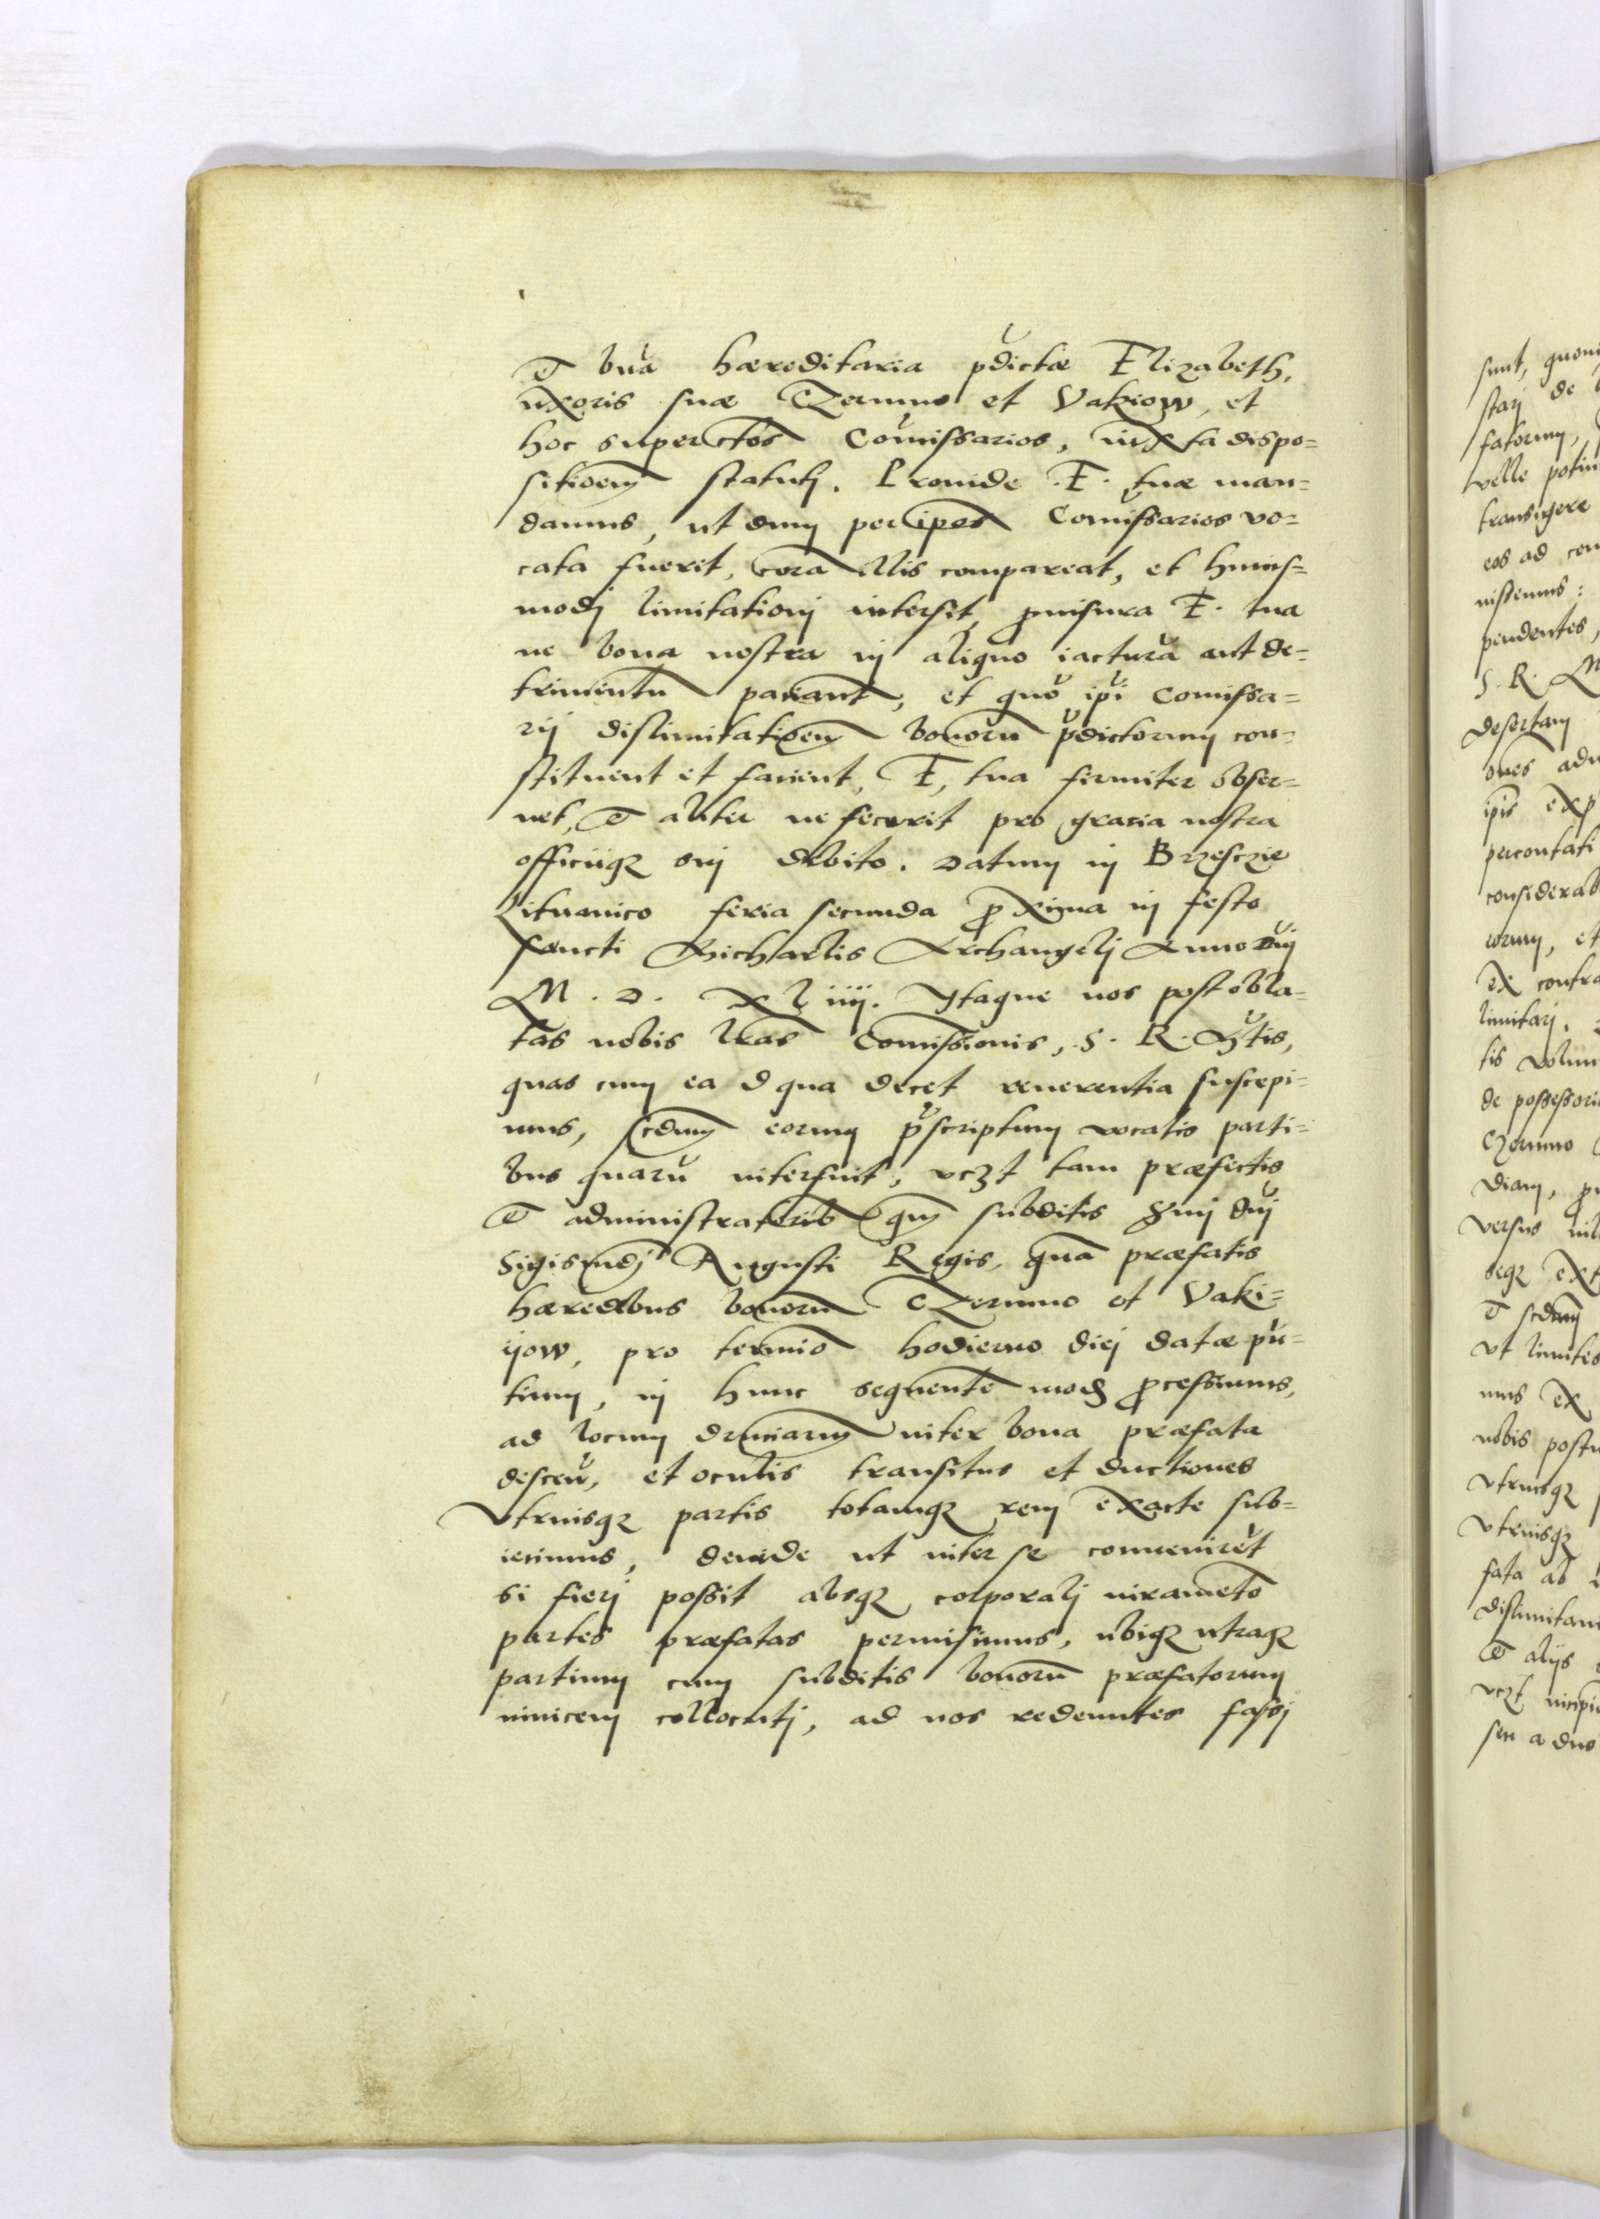 et bna hæreditaria pdictæ Elizabeth,
uxoris suæ Czernino et Vakiow, et
hoc super ctos Comissarios, iuxta dispo=
sitioem statuti. Proinde .F. tuæ man=
damus, ut dum per ipos Comissarios vo=
cata fuerit, cora illis compareat, et huius=
modi limitationi intersit, puisura F. tua
ne bona nostra in aliquo iactura aut de=
trimentu pariant, et quo ipi Comissa=
rij dislimitatioem bonoru pdictorum con=
stituent et facient, F, tua firmiter obser=
uet, et aliter ne fecerit pro gratia nostra
officijqz sui debito. Datum in Brzesczie
Lituanico feria secunda pxima in festo
sancti Michaelis Archangeli Anno dni
M. D. XLiiij. Itaque nos post obla=
tas nobis lras Comissionis, S. R. Mtis,
quas cum ea d qua decet reuerentia suscepi=
mus, scdum earum pscriptum vocatis parti=
bus quaru interfuit, vczt tam præfectis
et administratorib qm subditis Smi dni
Sigismdi Augusti Regis, qua præfatis
hæredibus bonoru Czernino et Vaki=
ijow, pro termino hodierno diei datæ pn=
tium, in hunc sequente mod pcessimus,
ad locum inter bona præfata
et oculis transitus et ductiones
Vtriusqz partis totamqz rem exacte sub=
iecimus, deinde ut inter se conueniret
si fieri possit absqz corporali iurameto
partes præfatas permisimus, ubiqz utraqz
partium cum subditis bonoru præfatorum
inuicem collocuti, ad nos redeuntes fassi
sunt, quoni
stari de
fatorum,
velle potiu
transigere
eos ad con
uissemus:
pendentes,
S. R. M
desertam
oues adu
ipis exp
percontati
considerab
torum, et
ex contra
limitari.
tis volun
de possessori
Czernino
diam, p
versus
seqz ext
et scdum
ut limites
mus ex
nobis postu
vtriusqz
vtriusqz
fata ab
dislimitan
et alijs
vczt incipi
seu a dno